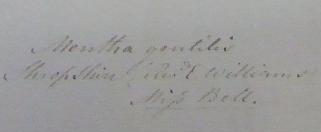 Mentha gentilis
Shropshire Revd E Williams
Miss Bell.